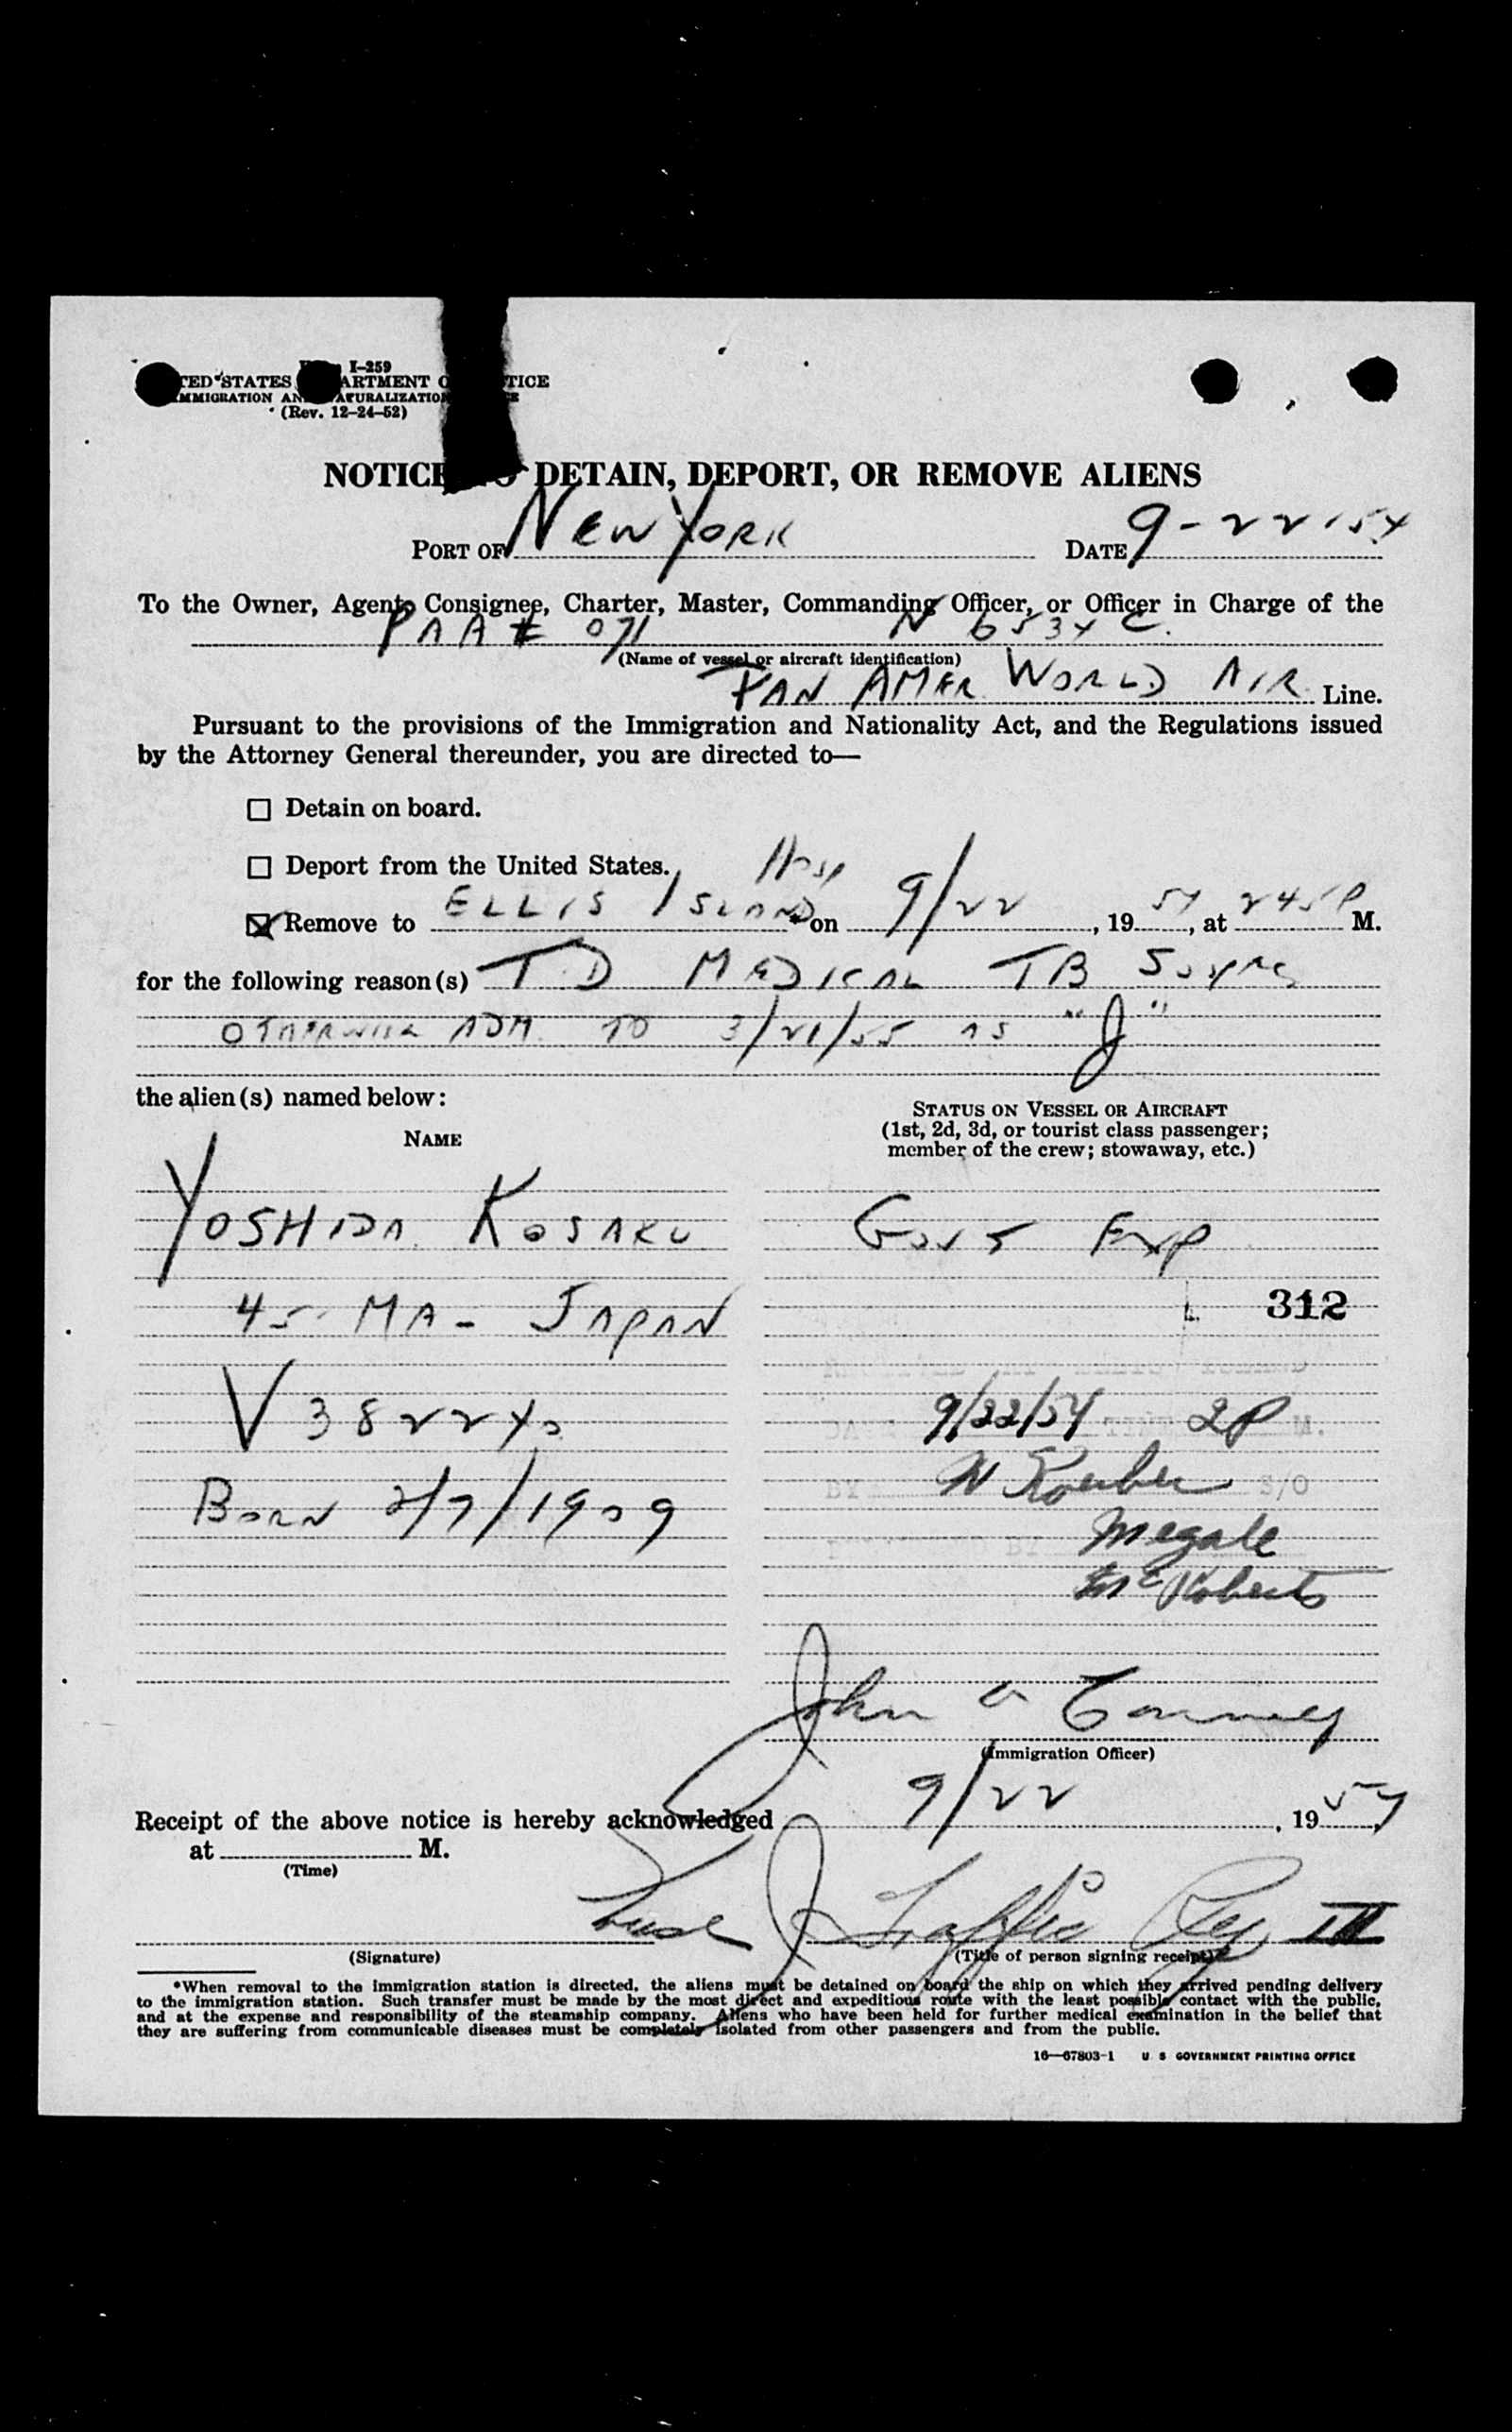 I-259
TED STATES ARTMENT O TICE
MMIGRATION AN ATURALIZATION E
(Rev. 12-24-52)
NOTICE TO DETAIN, DEPORT, OR REMOVE ALIENS
PORT OF NEW YORK DATE 9-22-54
To the Owner, Agent, Consignee, Charter, Master, Commanding Officer, or Officer in Charge of the
PAA # 071 N 6534 C.
(Name of vessel or aircraft identification)
PAN AMER WORLD AIR Line.
Pursuant to the provisions of the Immigration and Nationality Act, and the Regulations issued
by the Attorney General thereunder, you are directed to—
Detain on board.
Deport from the United States.
Hosp
Remove to ELLIS ISLAND *on 9/22, 1954, at 245 P M.
for the following reason(s) T.D MEDICAL TB
OTHERWISE ADM. TO 3/21/55 AS "J"
the alien(s) named below:
STATUS ON VESSEL OR AIRCRAFT
(1st, 2d, 3d, or tourist class passenger;
member of the crew; stowaway, etc.)
NAME
YOSHIDA KOSAKU GOVT EXP
45 MA - JAPAN 312
V 382240 9/22/54 2P M.
BY N Koerber S/O
BORN 2/7/1909
Megale
McRoberts
John
(Immigration Officer)
Receipt of the above notice is hereby acknowledged 9/22, 1954,
at M.
(Time)
Traffic III
(Signature) (Title of person signing receipt)
*When removal to the immigration station is directed, the aliens must be detained on board the ship on which they arrived pending delivery
to the immigration station. Such transfer must be made by the most direct and expeditious route with the least possible contact with the public,
and at the expense and responsibility of the steamship company. Aliens who have been held for further medical examination in the belief that
they are suffering from communicable diseases must be completely isolated from other passengers and from the public.
16—67803-1 U. S. GOVERNMENT PRINTING OFFICE